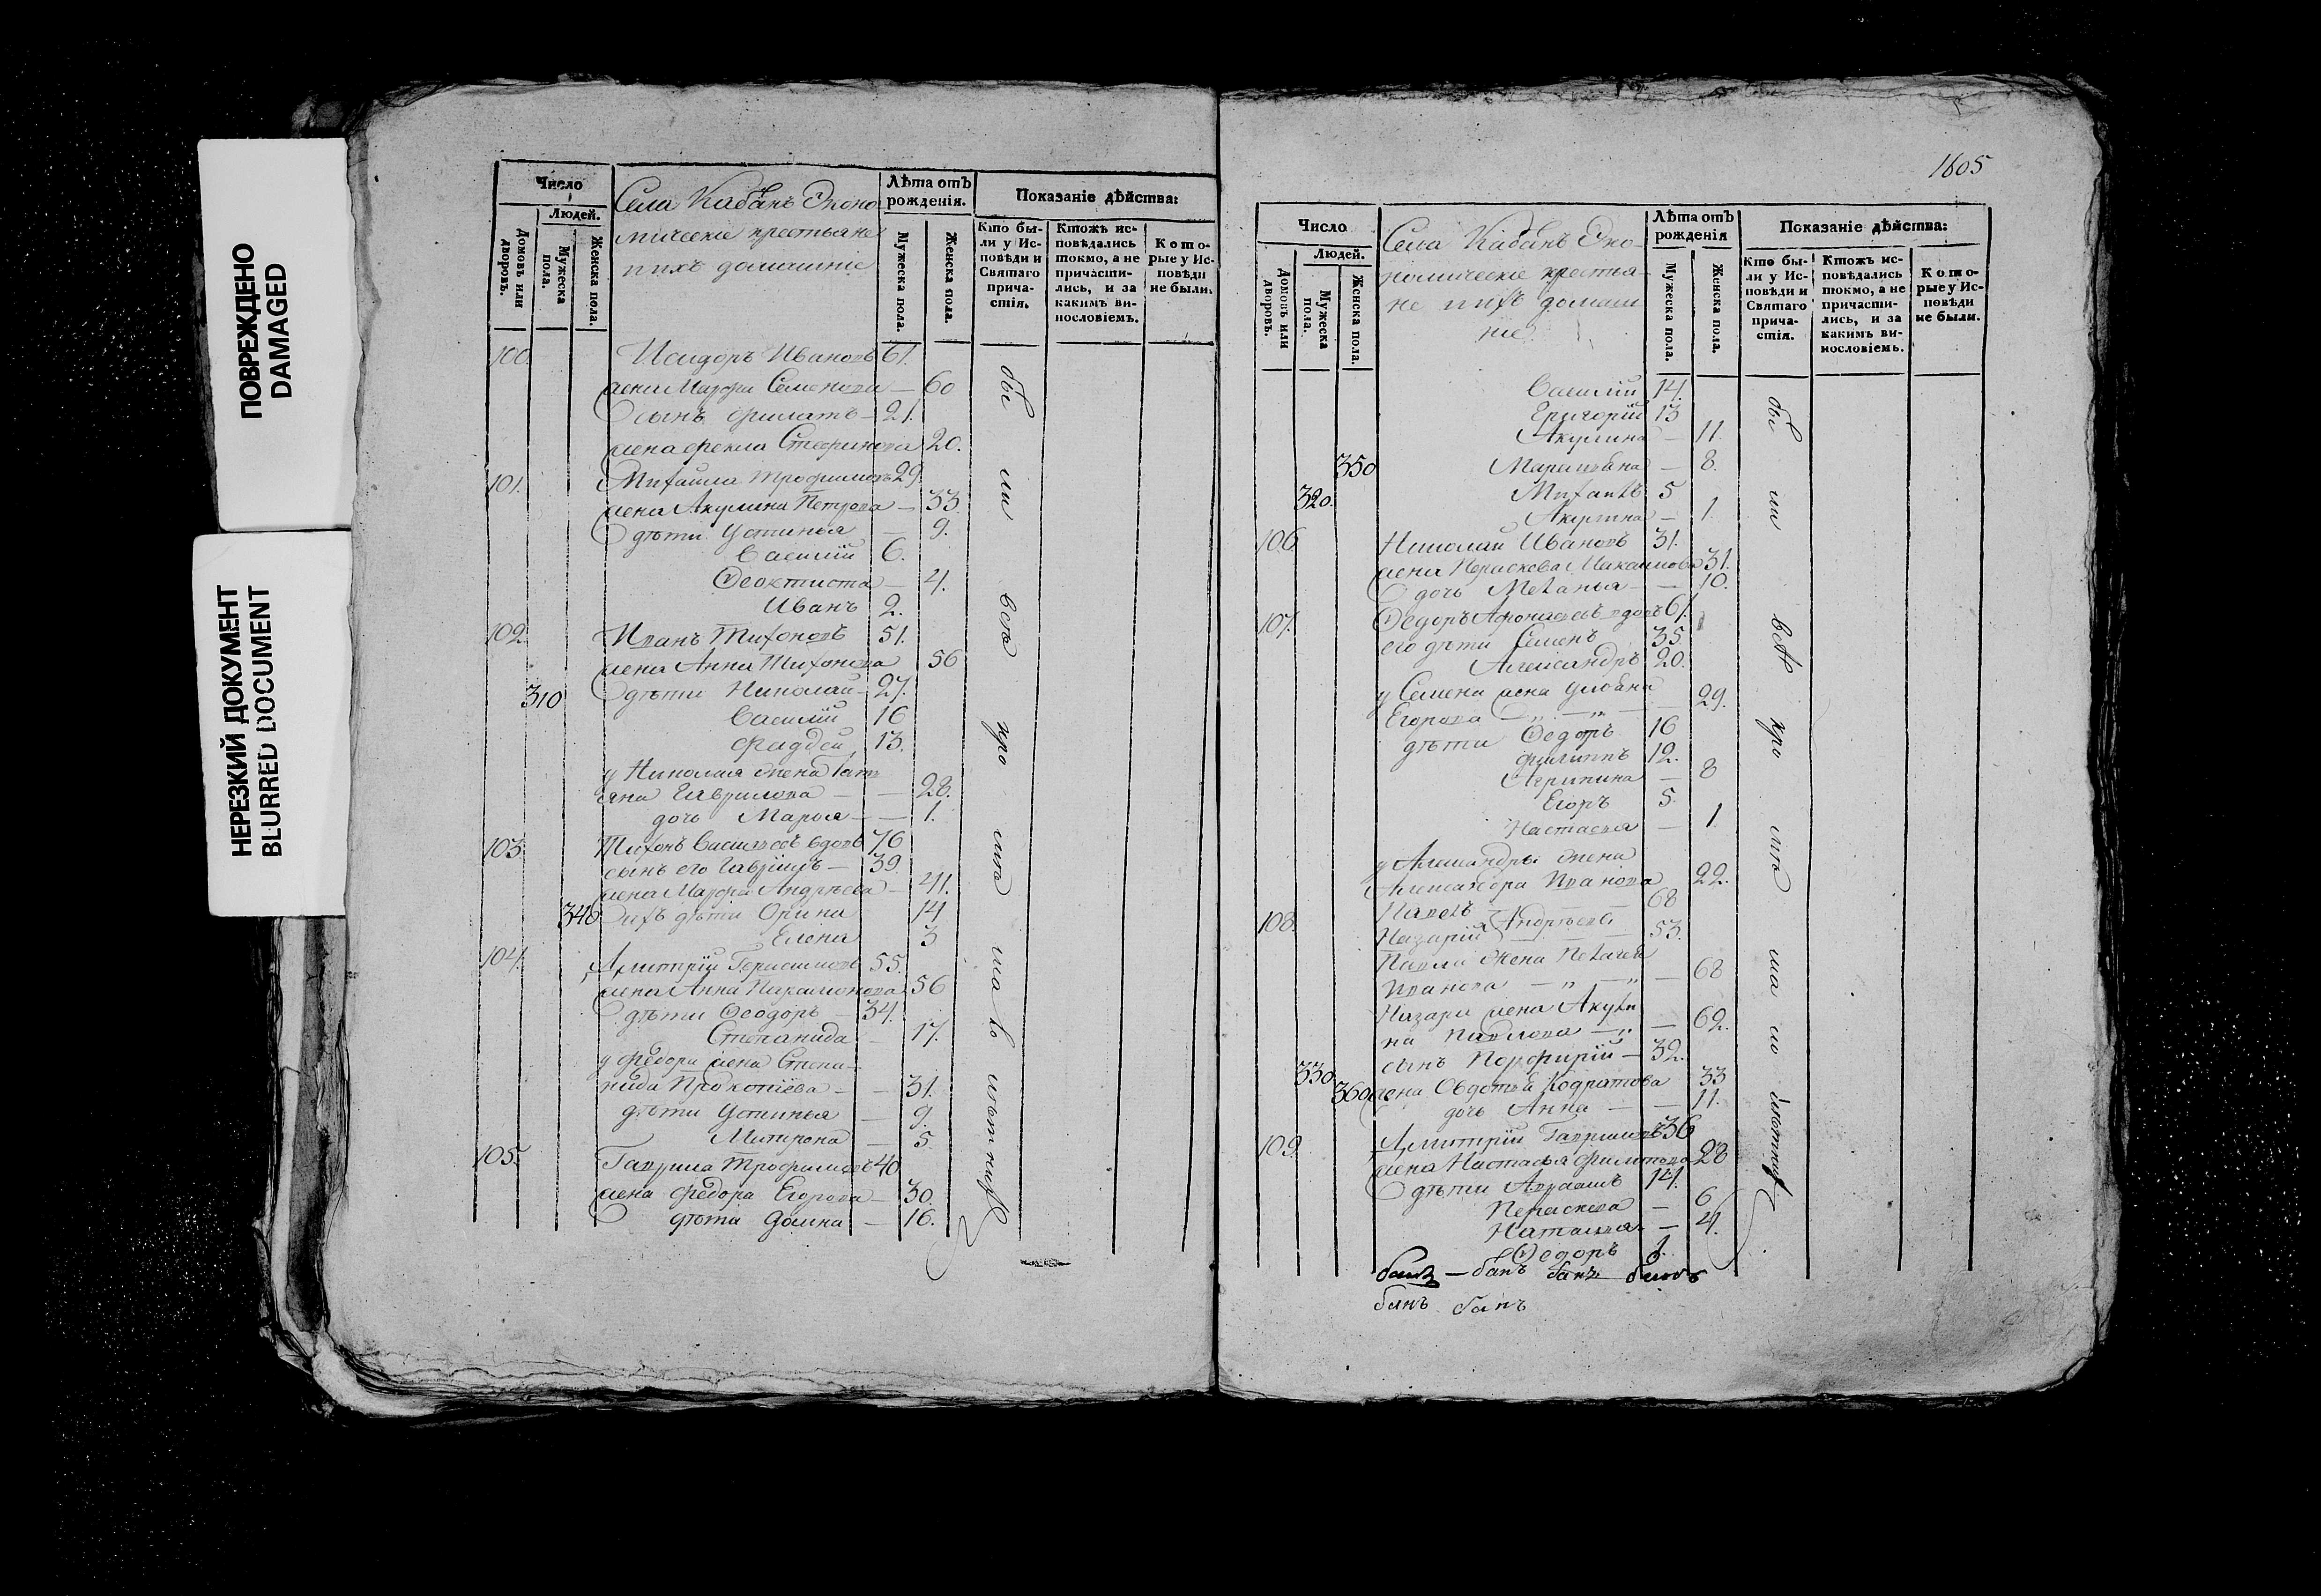 ПОВРЕЖДЕНО
DAMAGED
НЕРЕЗКИЙ ДОКУМЕНТ
BLURRED DOCUMENT
Число
Людей.
Домовъ или дворовъ.
Мужеска пола.
Женска пола.
Села Кабанъ Эконо
мическіе крестьяне
иихъ домашніе
Лѣта отъ рожденія.
Мужеска пола.
Женска пола.
Показаніе дѣйства:
Кто бы-
ли у Ис-
повѣди и
Святаго
прича-
стія.
Ктожъ ис-
повѣдались
токмо, а не
причасти-
лись, и за
какимъ ви-
нословіемъ.
Кото-
рые у Ис-
повѣди
не были.
100. Исидоръ Ивановъ 61.
жена Марфа Семенова — 60
сынъ Филатъ — 21.
жена Фекла Стефанова 20.
101. Михайла Трофимовъ 29.
жена Акулина Петрова — 33.
дѣти Устинья — 9.
Василій 6.
Феоктиста — 4.
Иванъ 2.
102. Иванъ Тихоновъ 51.
жена Анна Тихонова 56
310 дѣти Николай — 27.
Василій 16
Фаддей 13.
у Николая жена Тать
яна Гаврилова — — 28.
дочь Марья — — 1.
103. Тихонъ Васильевъ вдовъ 76
сынъ его Гаврилъ — 39.
жена Марфа Андрѣева — 41.
340 ихъ дѣти Орина 14
Елена 3
104. Дмитрій Герасимовъ 55.
жена Анна Парамонова 56
дѣти Феодоръ — 34.
Степанида — 17.
у Федора жена Степа-
нида Прокопіева — — 31.
дѣти Устинья — 9.
Митрона — 5.
105. Гаврила Трофимовъ 40
жена Федора Егорова — 30.
дѣти Домна — 16.
бы ли всѣ кро мѣ ма ло лѣтнихъ
1605
Число
Людей.
Домовъ или дворовъ.
Мужеска пола.
Женска пола.
Села Кабанъ Эко-
номическіе крестья-
не иихъ домаш
ніе
Лѣта отъ рожденія
Мужеска пола.
Женска пола.
Показаніе дѣйства:
Кто бы-
ли у Ис-
повѣди и
Святаго
прича-
стія.
Ктожъ ис-
повѣдались
токмо, а не
причасти-
лись, и за
какимъ ви-
нословіемъ.
Кото-
рые у Ис-
повѣди
не были.
Василій 14.
Григорій 13
Акулина — 11.
350 — 8.
320. Михаилъ 5
Акулина — 1.
106. Николай Ивановъ 31.
жена Пераскева 31.
дочь Меланья — — 10.
107. Федоръ вдовъ 61.
его дѣти Семенъ 35
Александръ 20.
у Семена жена Ульяна
Егорова — „ — „ — 29.
дѣти Федоръ 16
Филиппъ 12.
Агрипина — 8
Егоръ 5.
Настасья — 1.
у Александры жена
Александра Иванова 22.
108. Павелъ — — — 68
Назарій Андрѣевы — 53.
Павла жена Пелагея
Иванова — „ — „ — 68
Назара жена Акули
на Павлова — „ — 62.
330 сынъ Порфирій — 32.
360 жена Овдотья Кодратова 33
дочь Анна — — 11.
109. Дмитрій Гавриловъ 36
жена Настасья Филипова 28
дѣти Авраамъ 14.
Пераскева — 6
Наталья — 4.
Федоръ 1.
бы ли всѣ кро мѣ ма ло лѣтнихъ
— банъ банъ
банъ банъ